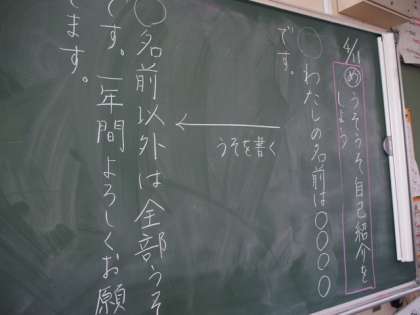 4/11
め うそうそ自己紹介を
しよう
○わたしの名前は○○○○
です。
うそを書く
○名前以外は全部うそ
です。一年間よろしくお願
きます。